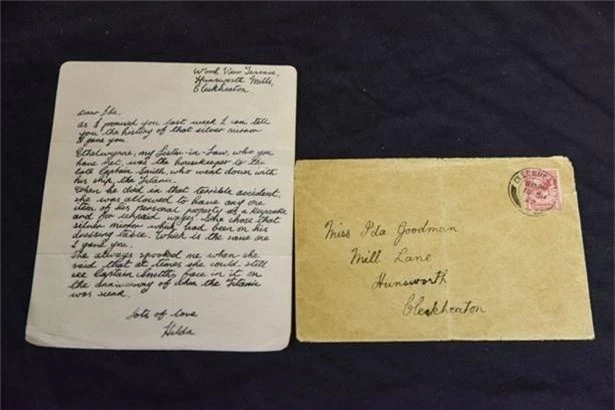 Wood View Terrace,
Hunsworth Mills,
Cleckheaton
Dear Ida.
As I promised you last week I can tell
you the history of that silver mirror
I gave you.
Ethelwynne, my Sister-in-Law, who you
have met, was the housekeeper to the
late Captain Smith, who went down with
his ship, the Titanic.
When he died in that terrible accident,
she was allowed to have any one
item of his personal property as a keepsake
and for unpaid wages. She chose that
silver mirror which had been on his
dressing table. Which is the same one
I gave you.
She always spooked me when she
said that at times she could still
see Captain Smiths face in it on
the anniversary of when the Titanic
was sunk.
Lots of Love
Hilda
Miss Ida Goodman
Mill Lane
Hunsworth
Cleckheaton